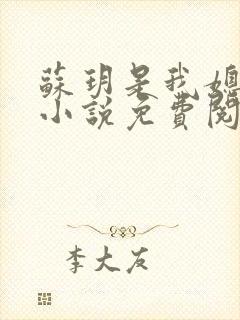 蘇玥是我媳
小說免費閱
李大友